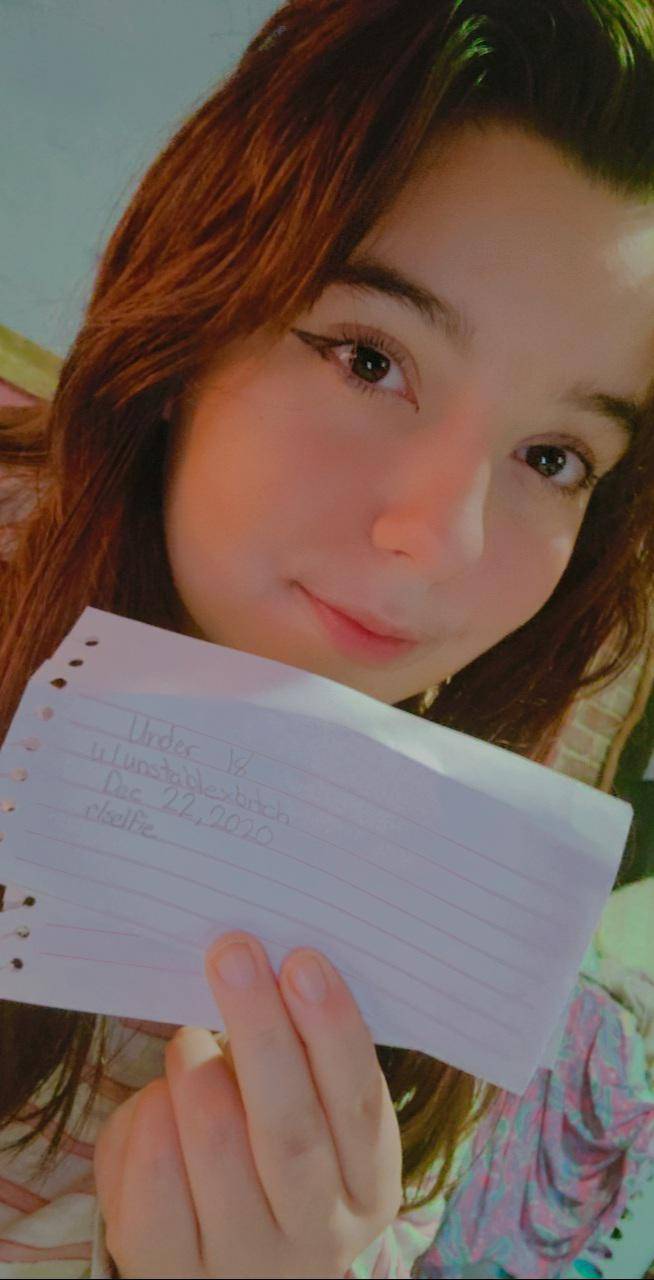 Under 18
u/unstablexbitch
Dec 22, 2020
r/selfie